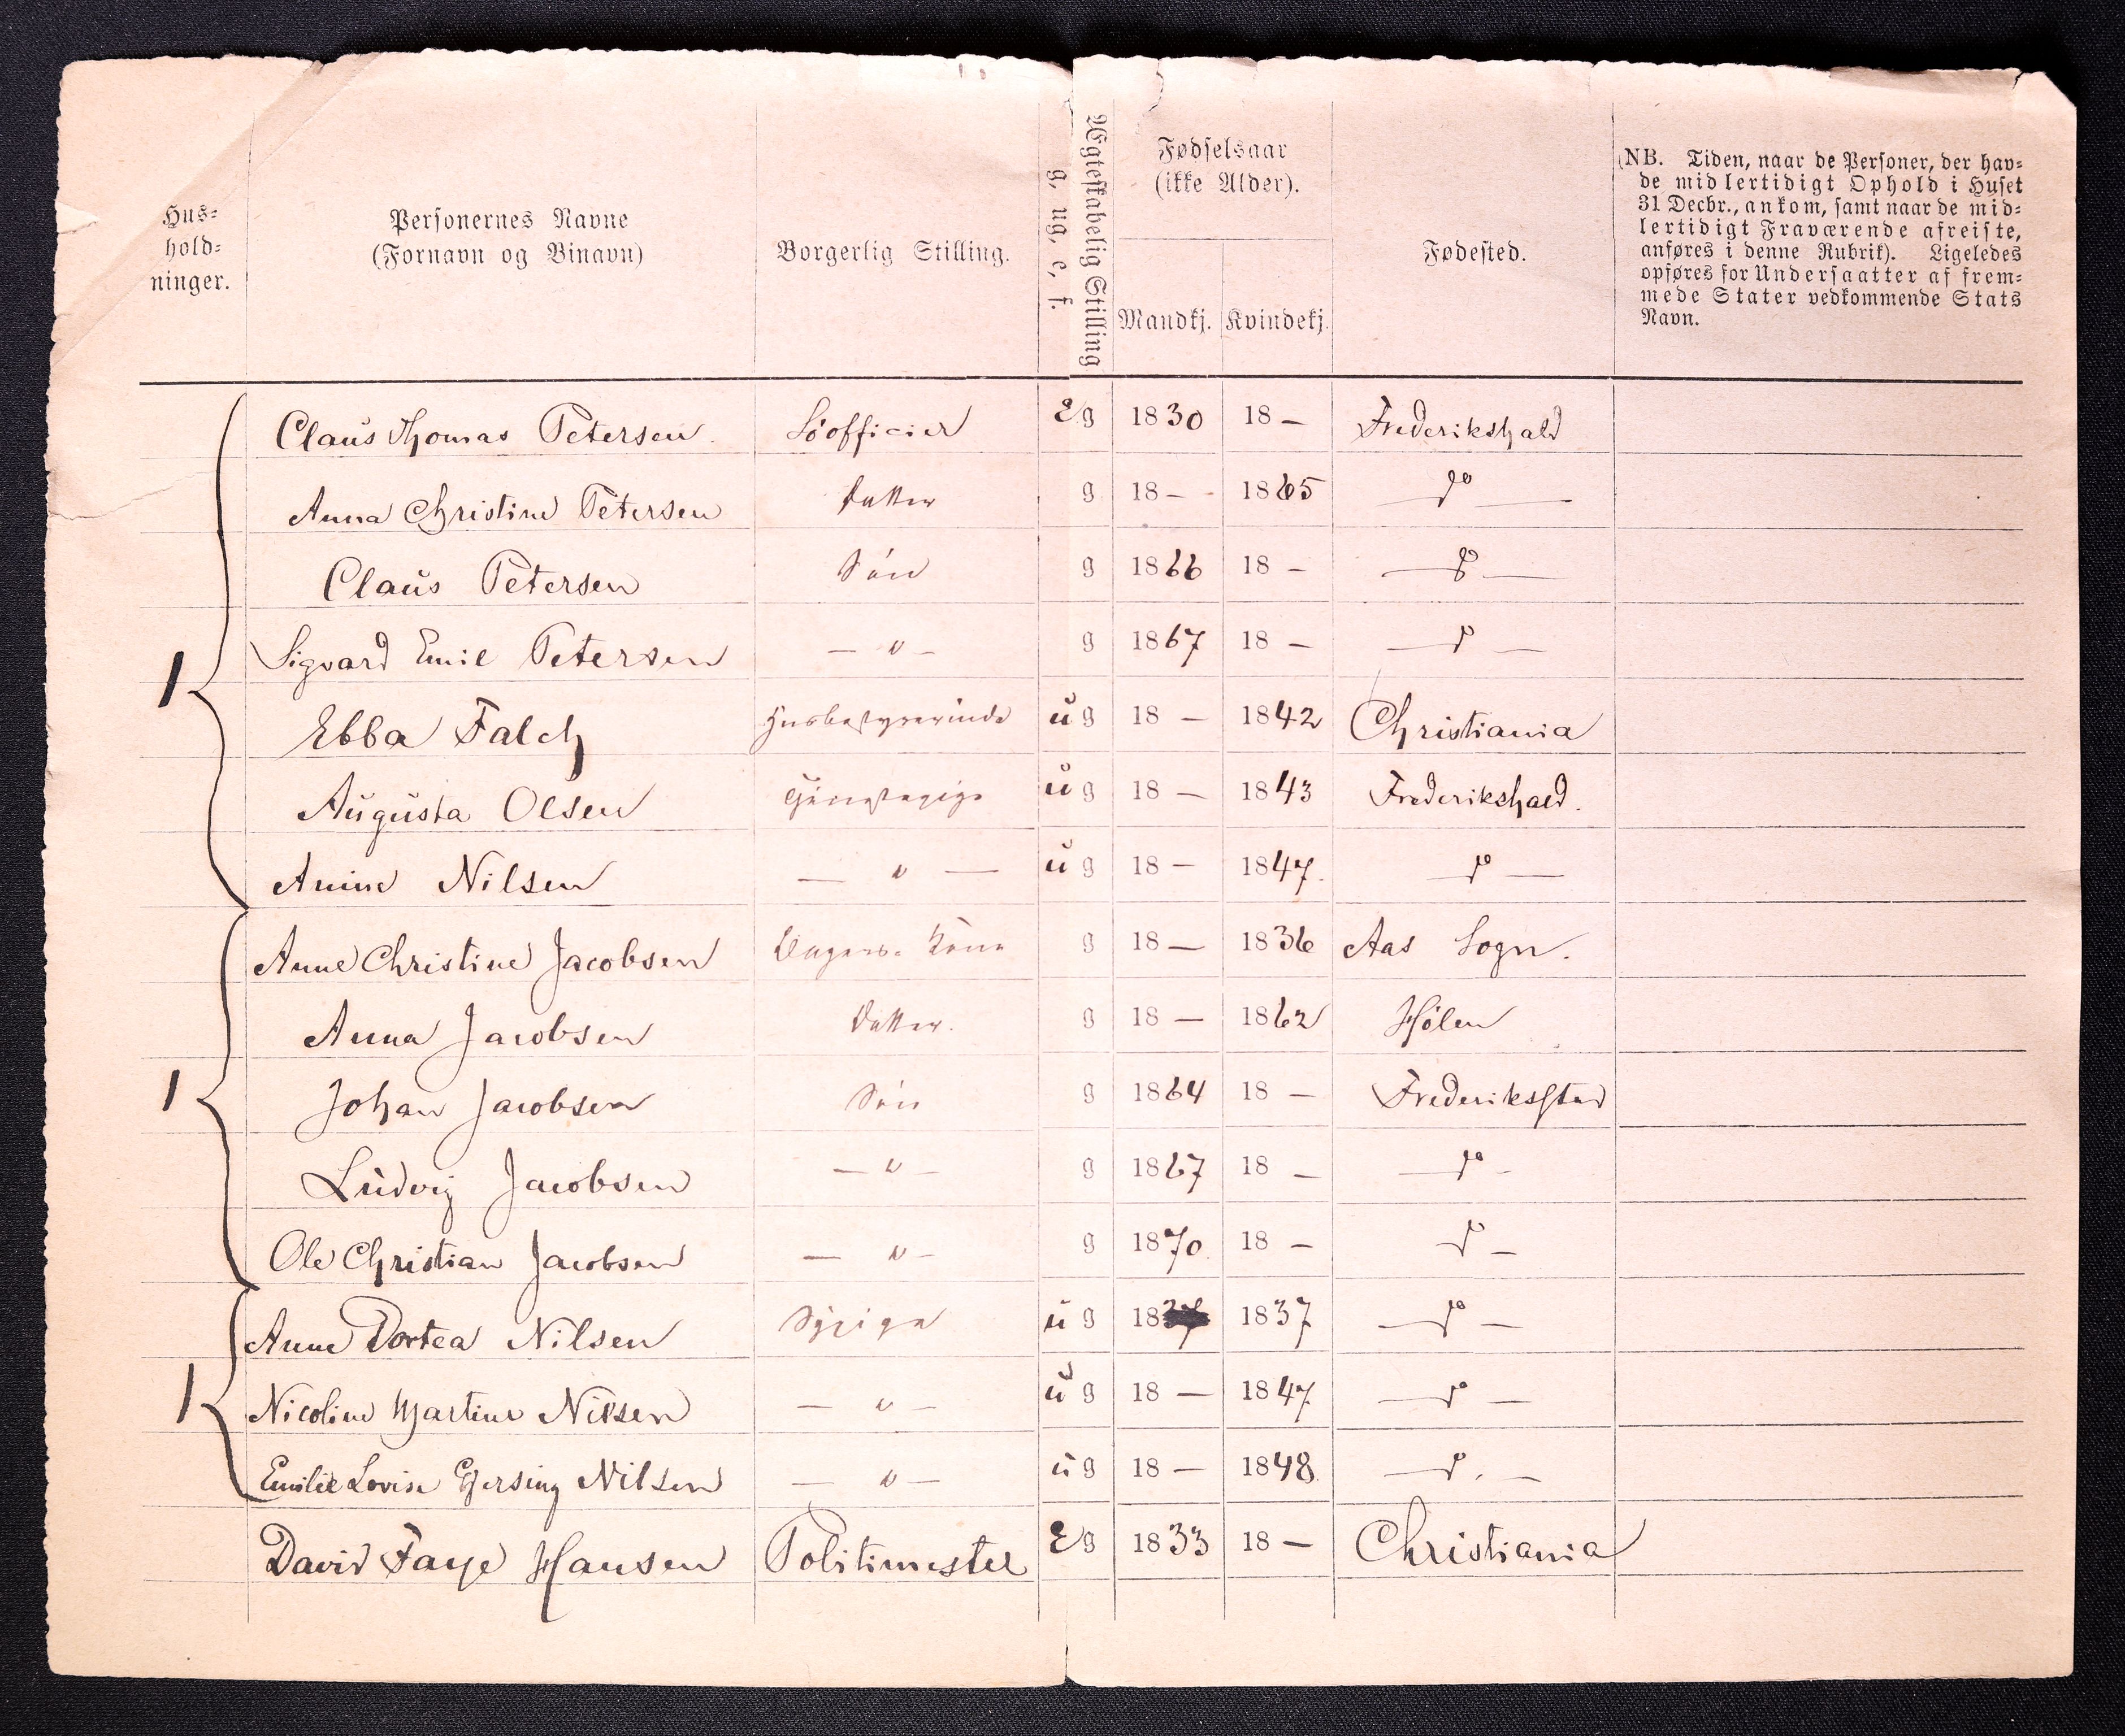 Hus-
hold-
ninger.
Personernes Navne
(Fornavn og Binavn)
Borgerlig Stilling.
Ægteskabelig Stilling
g, ug, e, f.
Fødselsaar
(ikke Alder).
Mandkj. Kvindekj.
Fødested.
(NB. Tiden, naar de Personer, der hav-
de midlertidigt Ophold i Huset
31 Decbr., ankom, samt naar de mid-
lertidigt Fraværende afreiste,
anføres i denne Rubrik). Ligeledes
opføres for Undersaatter af frem-
mede Stater vedkommende Stats
Navn.
Claus Thomas Petersen Söofficier E g 1830 18 — Frederikshald
Anna Christine Petersen Datter g 18 — 1865 — do —
Claus Petersen Sön g 1866 18 — — do —
Sigvard Emil Petersen — " — g 1867 18 — — do —
1
Ebba Falch Husbestyrerinde u g 18 — 1842 Christiania
Augusta Olsen u g 18 — 1843 Frederikshald.
Anine Nilsen — " — u g 18 — 1847. do —
Anne Christine Jacobsen Kone g 18 — 1836 Aas Sogn.
Anna Jacobsen Datter. g 18 — 1862 Hölen
1 Johan Jacobsen Sön g 1864 18 — Frederiksstad
Ludvig Jacobsen — " — g 1867 18 — — do —
Ole Christian Jacobsen — " — g 1870. 18 — do —
Anne Dortea Nilsen Sypige u g 18 1837 — do —
1 Nicoline Martine Nilsen — " — u g 18 — 1847. — do —
Emilie Lovise Gjersing Nilsen — " — u g 18 — 1848. — do. —
David Faye Hansen Politimester E g 1833 18 — Christiania